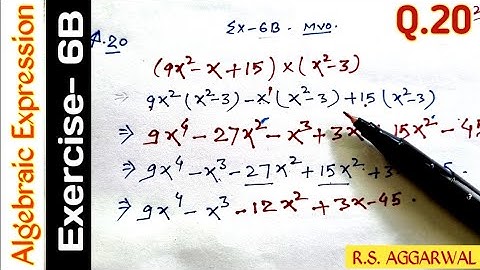 Algebraic Expression
Exercise- 6B
Ex-6B Mvo.
Q.20
Q.20
(9x²-x+15)×(x²-3)
9x²(x²-3)-x¹(x²-3)+15(x²-3)
⇒ 9x⁴-27x²-x³+3x 15x²-45
⇒ 9x⁴-x³-27x²+15x²+3
⇒ 9x⁴-x³-12x²+3x-45.
R.S. AGGARWAL